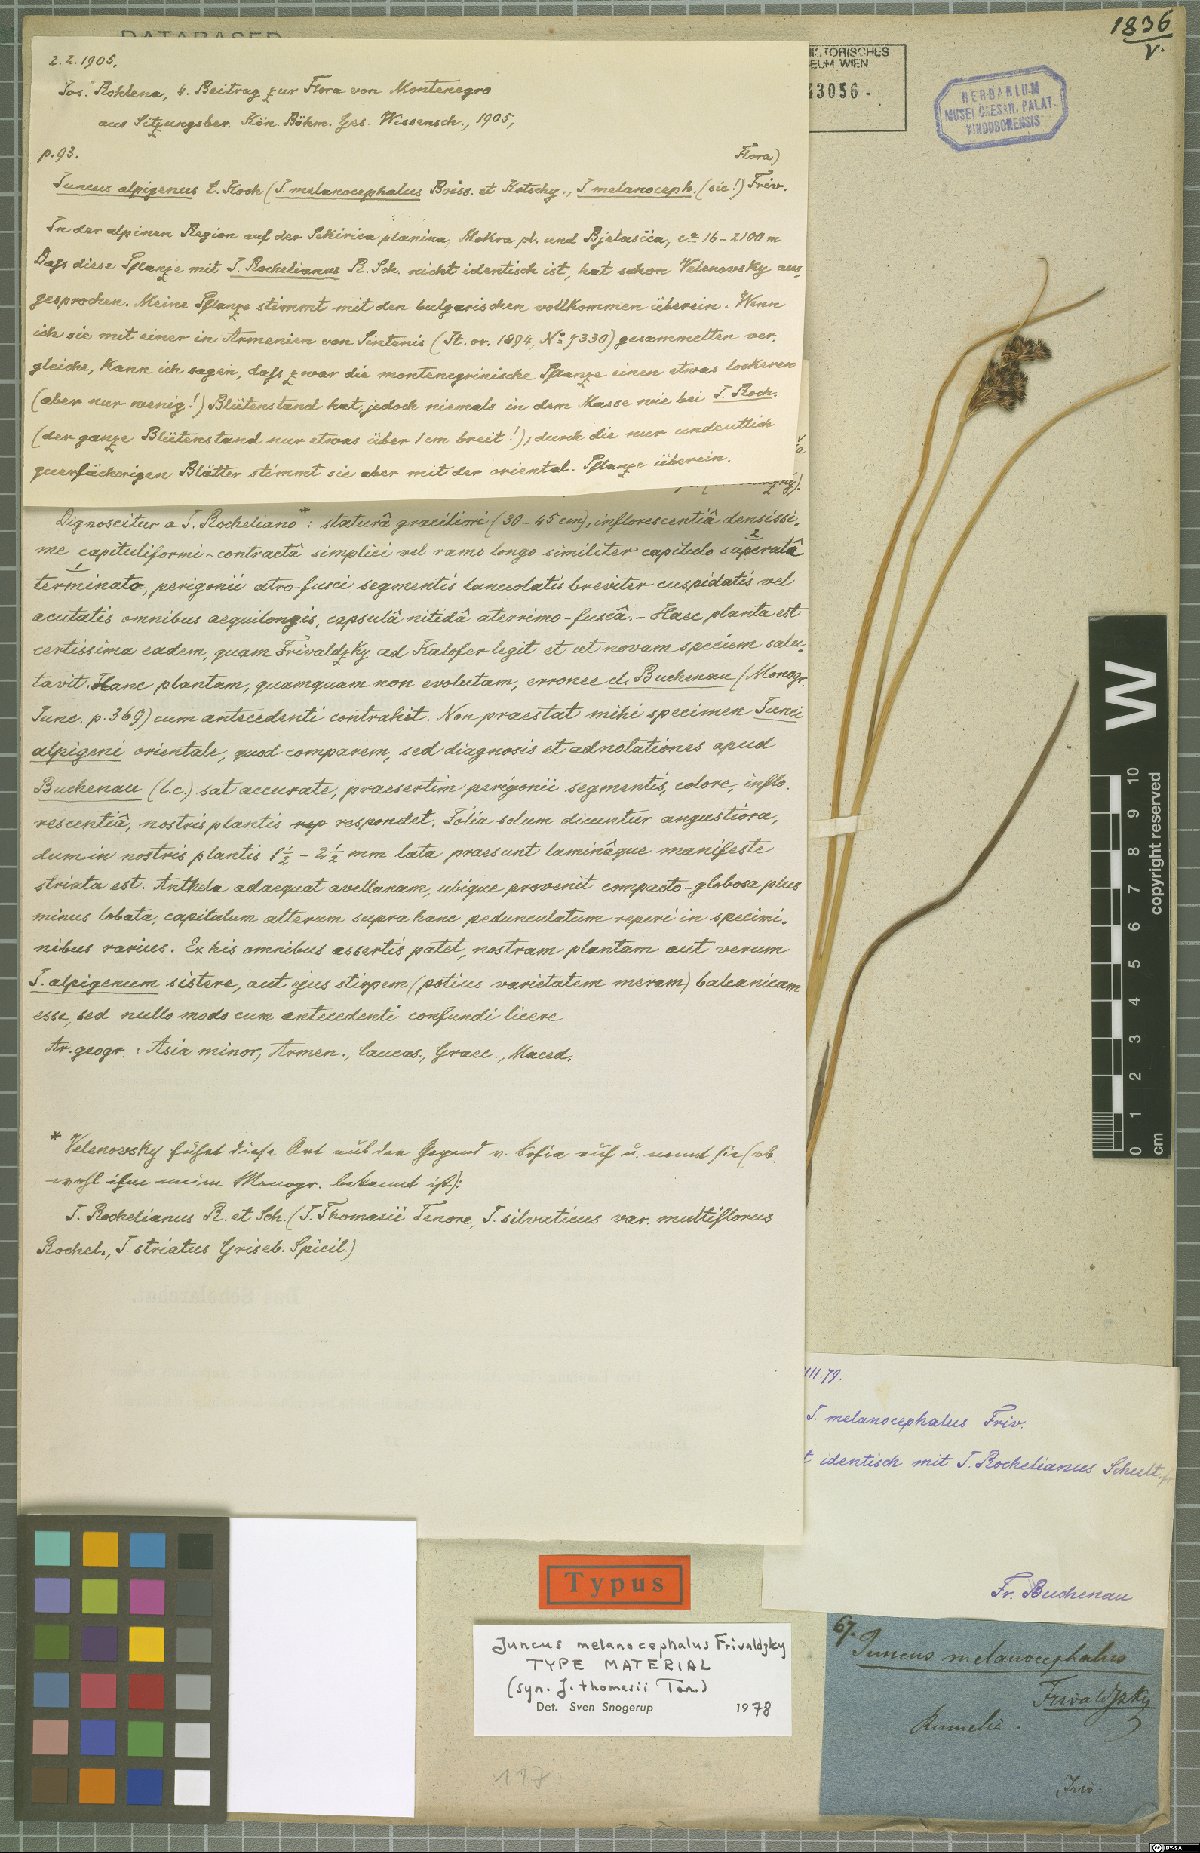 1836
V.
DATABASED
TORISCHES
UM WIEN
3056.
HERBARIUM
MUSEI CAESAR. PALAT.
VINDOBONENSIS
2. 2. 1905.
Jos. Rohlena, 4. Beitrag zur Flora von Montenegro
aus Sitzungsber. Kön. Böhm. Ges. Wissensch., 1905,
p. 93.
Flora)
Juncus alpigenus C. Koch (J. melanocephalus Boiss. et Kotschy., J melanoceph. (sic!) Friv.
In der alpinen Region auf der Sekirica planina, Mokra pl. und Bjelasica, ca 16-2100 m
Dafs diese Pflanze mit J. Rochelianus R. Sch. nicht identisch ist, hat schon Velenovsky aus-
gesprochen. Meine Pflanze stimmt mit den bulgarischen vollkommen überein. Wenn
ich sie mit einer in Armenien von Sintenis (It. or. 1894, No 7330) gesammelten ver-
gleiche, kann ich sagen, dafs zwar die montenegrinische Pflanze einen etwas lockeren
(aber nur wenig!) Blütenstand hat, jedoch niemals in dem Masse wie bei J. Roch.
(der ganze Blütenstand nur etwas über 1 cm breit!); durch die nur undeutlich
querfächerigen Blätter stimmt sie aber mit der oriental. Pflanze überein.
Dignoscitur a J. Rocheliano*: staturâ graciliori (30-45 cm), inflorescentiâ densissi-
me capituliformi-contractâ simplici vel ramo longo similiter capitulo superatâ
terminato, perigonii atro-fusci segmentis lanceolatis breviter cuspidatis vel
acutatis omnibus aequilongis, capsulâ nitidâ aterrimo-fuscâ. - Haec planta est
certissima eadem, quam Frivaldzky ad Kalofer legit et ut novam speciem salu-
tavit. Hanc plantam, quamquam non evolutam, erronee cl. Buchenau (Monogr.
Junc. p. 369) cum antecedenti contrahit. Non praestat mihi specimen Junci
alpigeni orientale, quod comparem, sed diagnosis et adnotationes apud
Buchenau (l.c.) sat accurate, praesertim perigonii segmentis, colore, inflo-
rescentiâ, nostris plantis respondet. Folia solum dicuntur angustiora,
dum in nostris plantis 1 1/2 - 2 1/2 mm lata praesunt laminâque manifeste
striata est. Anthela adaequat avellanam, ubique provenit compacto-globosa plus
minus lobata, capitulum alterum supra hanc pedunculatum reperi in speci mi-
nibus rarius. Ex his omnibus assertis patet, nostram plantam aut verum
J. alpigenum sistere, aut ejus stirpem (potius varietatem meram) balcanicam
esse, sed nullo modo cum antecedenti confundi licere
Ar. geogr.: Asia minor, Armen., Caucas., Graec, Maced.
* Velenovsky führt diese Art aus der Gegend v. Sofia auf u. nennt sie (ob-
wohl ihm meine Monogr. bekannt ist):
J. Rochelianus R. et Sch. (J. Thomasii Tenore, J. silvaticus var. multiflorus
Rochel., J striatus Griseb. Spicil)
III. 79.
J. melanocephalus Friv.
t identisch mit J. Rochelianus Schult. f.
Fr. Buchenau
Typus
Juncus melanocephalus Frivaldzky
TYPE MATERIAL
(syn. J. thomasii Ten.)
Det. Sven Snogerup 1978
67.
Juncus melanocephalus
Frivaldzky
Rumelia.
Friv.
117
W
0 1 2 3 4 5 6 7 8 9 10
cm
copyright reserved